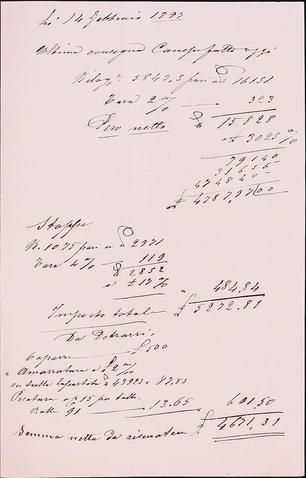 li 14 Febbraio 1892
Ultima consegna Canepe fatta oggi
Kilog. 5847,5 pari a 16151
Tara 2 % 323
Peso netto 15828
a £ 3025 %
79140
31656
474840
£ 4787,97 00
Stoppe
K. 1075 pari a 2971
Tara 4 % 119
2852
a £ 17 %
484,84
Importo totale £ 5272,81
Da Detrarsi
Caparra £ 500
Amarratura a £ 2 %
su tutta la partita 43925 = 87,85
a £ 15 per balla
Balle 91 13.65
601,50
Somma netta da riscuotere £ 4671,31